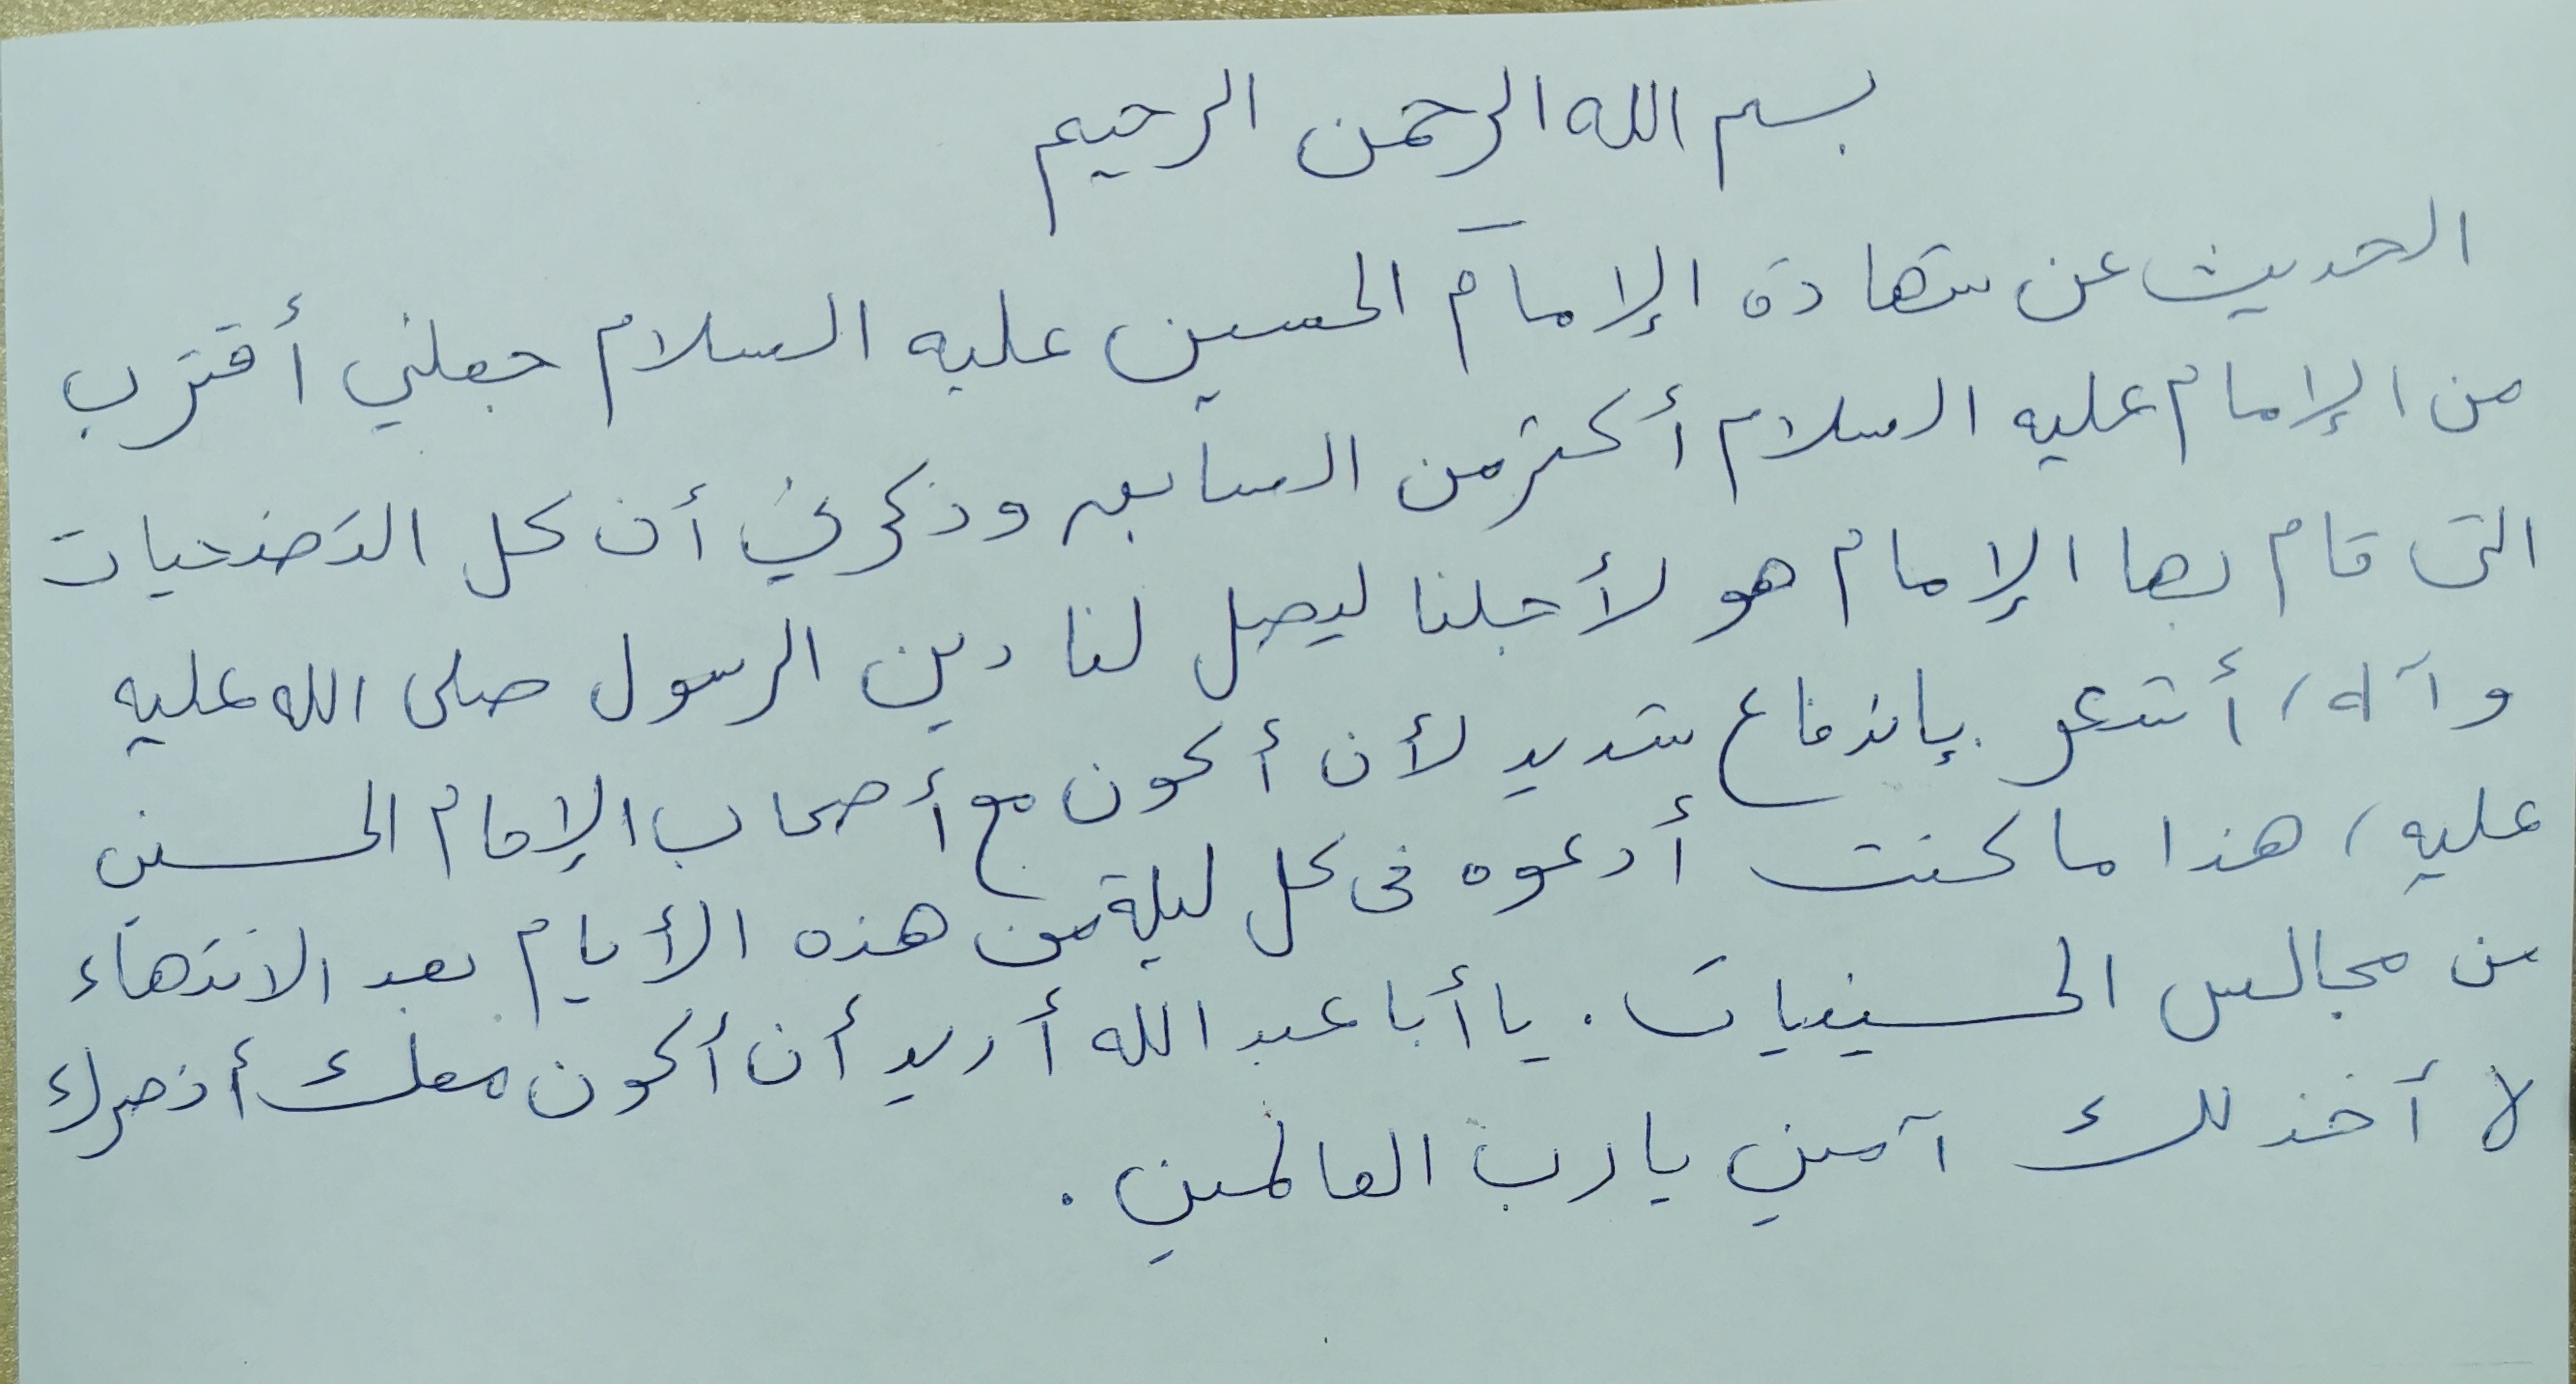 بسم الله الرحمن الرحيم
الحديث عن شهادة الإمام الحسين عليه السلام جعلني أقترب
من الإمام عليه السلام أكثر من السابق وذكرني أن كل التضحيات
التى قام بها الإمام هو لأجلنا ليصل لنا دين الرسول صلى الله عليه
وآله، أشعر بإندفاع شديد لأن أكون مع أصحاب الإمام الحسين
عليه، هذا ما كنت أدعوه فى كل ليلة من هذه الأيام بعد الانتهاء
من مجالس الحسينيات. يا أبا عبد الله أريد أن أكون معك أنصرك
لا أخذلك آمين يارب العالمين.